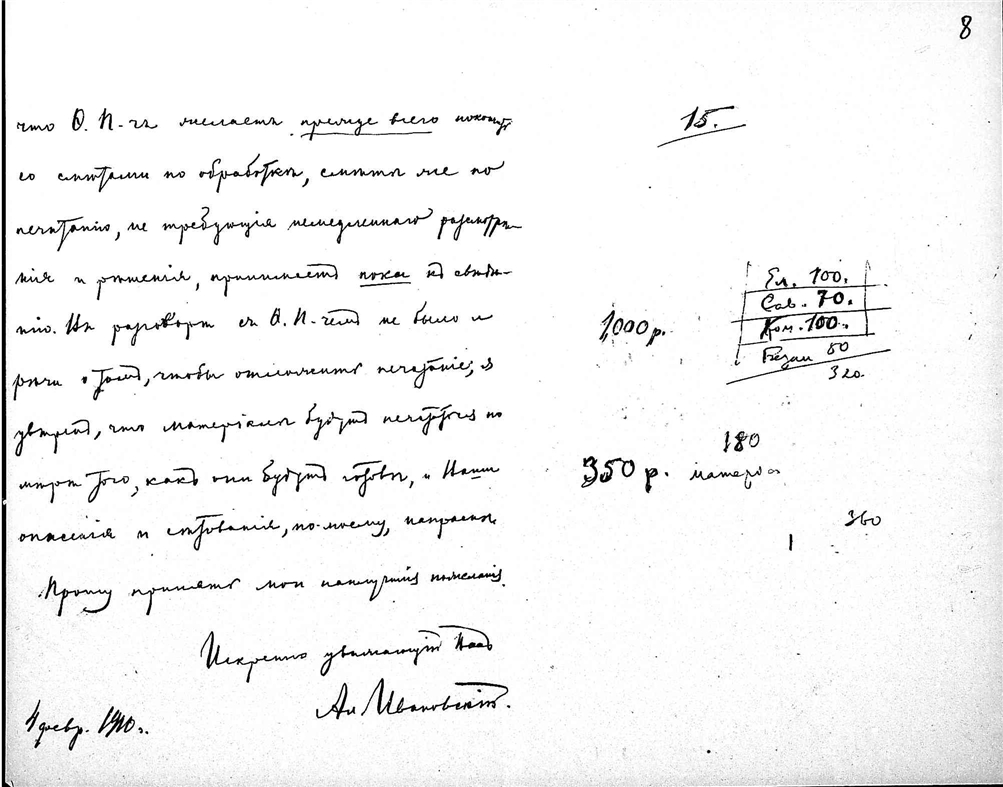 8
что Ѳ. П-чъ желаетъ прежде всего покончить
со смѣтами по обработкѣ, смѣты же по
печатанію, не требующія немедленнаго разсмотрѣ-
нія и рѣшенія, принимаетъ пока къ свѣдѣ-
нію. Въ разговорѣ съ Ѳ. П-чемъ не было и
рѣчи о томъ, чтобы отложить печатаніе; я
увѣренъ, что матеріалы будутъ печататься по
мѣрѣ того, какъ они будутъ готовы, и Ваши
опасенія и сѣтованія, по-моему, напрасны.
Прошу принять мои наилучшія пожеланія.
Искренно уважающій Васъ
Ал. Ивановскій.
4 февр. 1910 г.
15.
Ел. 100.
Сав. 70.
1,000 р.
Ком. 100.
50
320.
180
350 р.
360
1